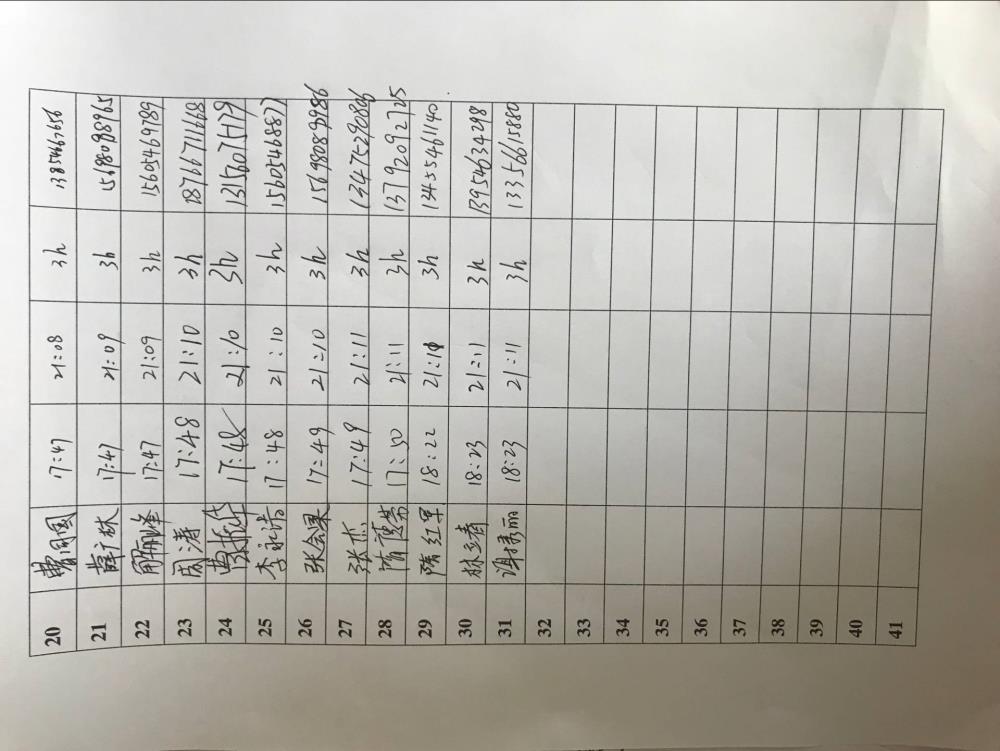 20 曹同国 17:47 21:08 3h 13854667656
21 薛林 17:47 21:09 3h 15698088965
22 解峰 17:47 21:09 3h 15605469789
23 周涛 17:48 21:10 3h 18766711668
24 17:48 21:10 3h 13156075179
25 李永浩 17:48 21:10 3h 15605468877
26 张会果 17:49 21:10 3h 15698089986
27 张杰 17:49 21:11 3h 13475290806
28 隋芳 17:50 21:11 3h 13792092725
29 隋红军 18:22 21:11 3h 13455461140
30 林春 18:23 21:11 3h 13954634298
31 谢秀丽 18:23 21:11 3h 13356615880
32
33
34
35
36
37
38
39
40
41